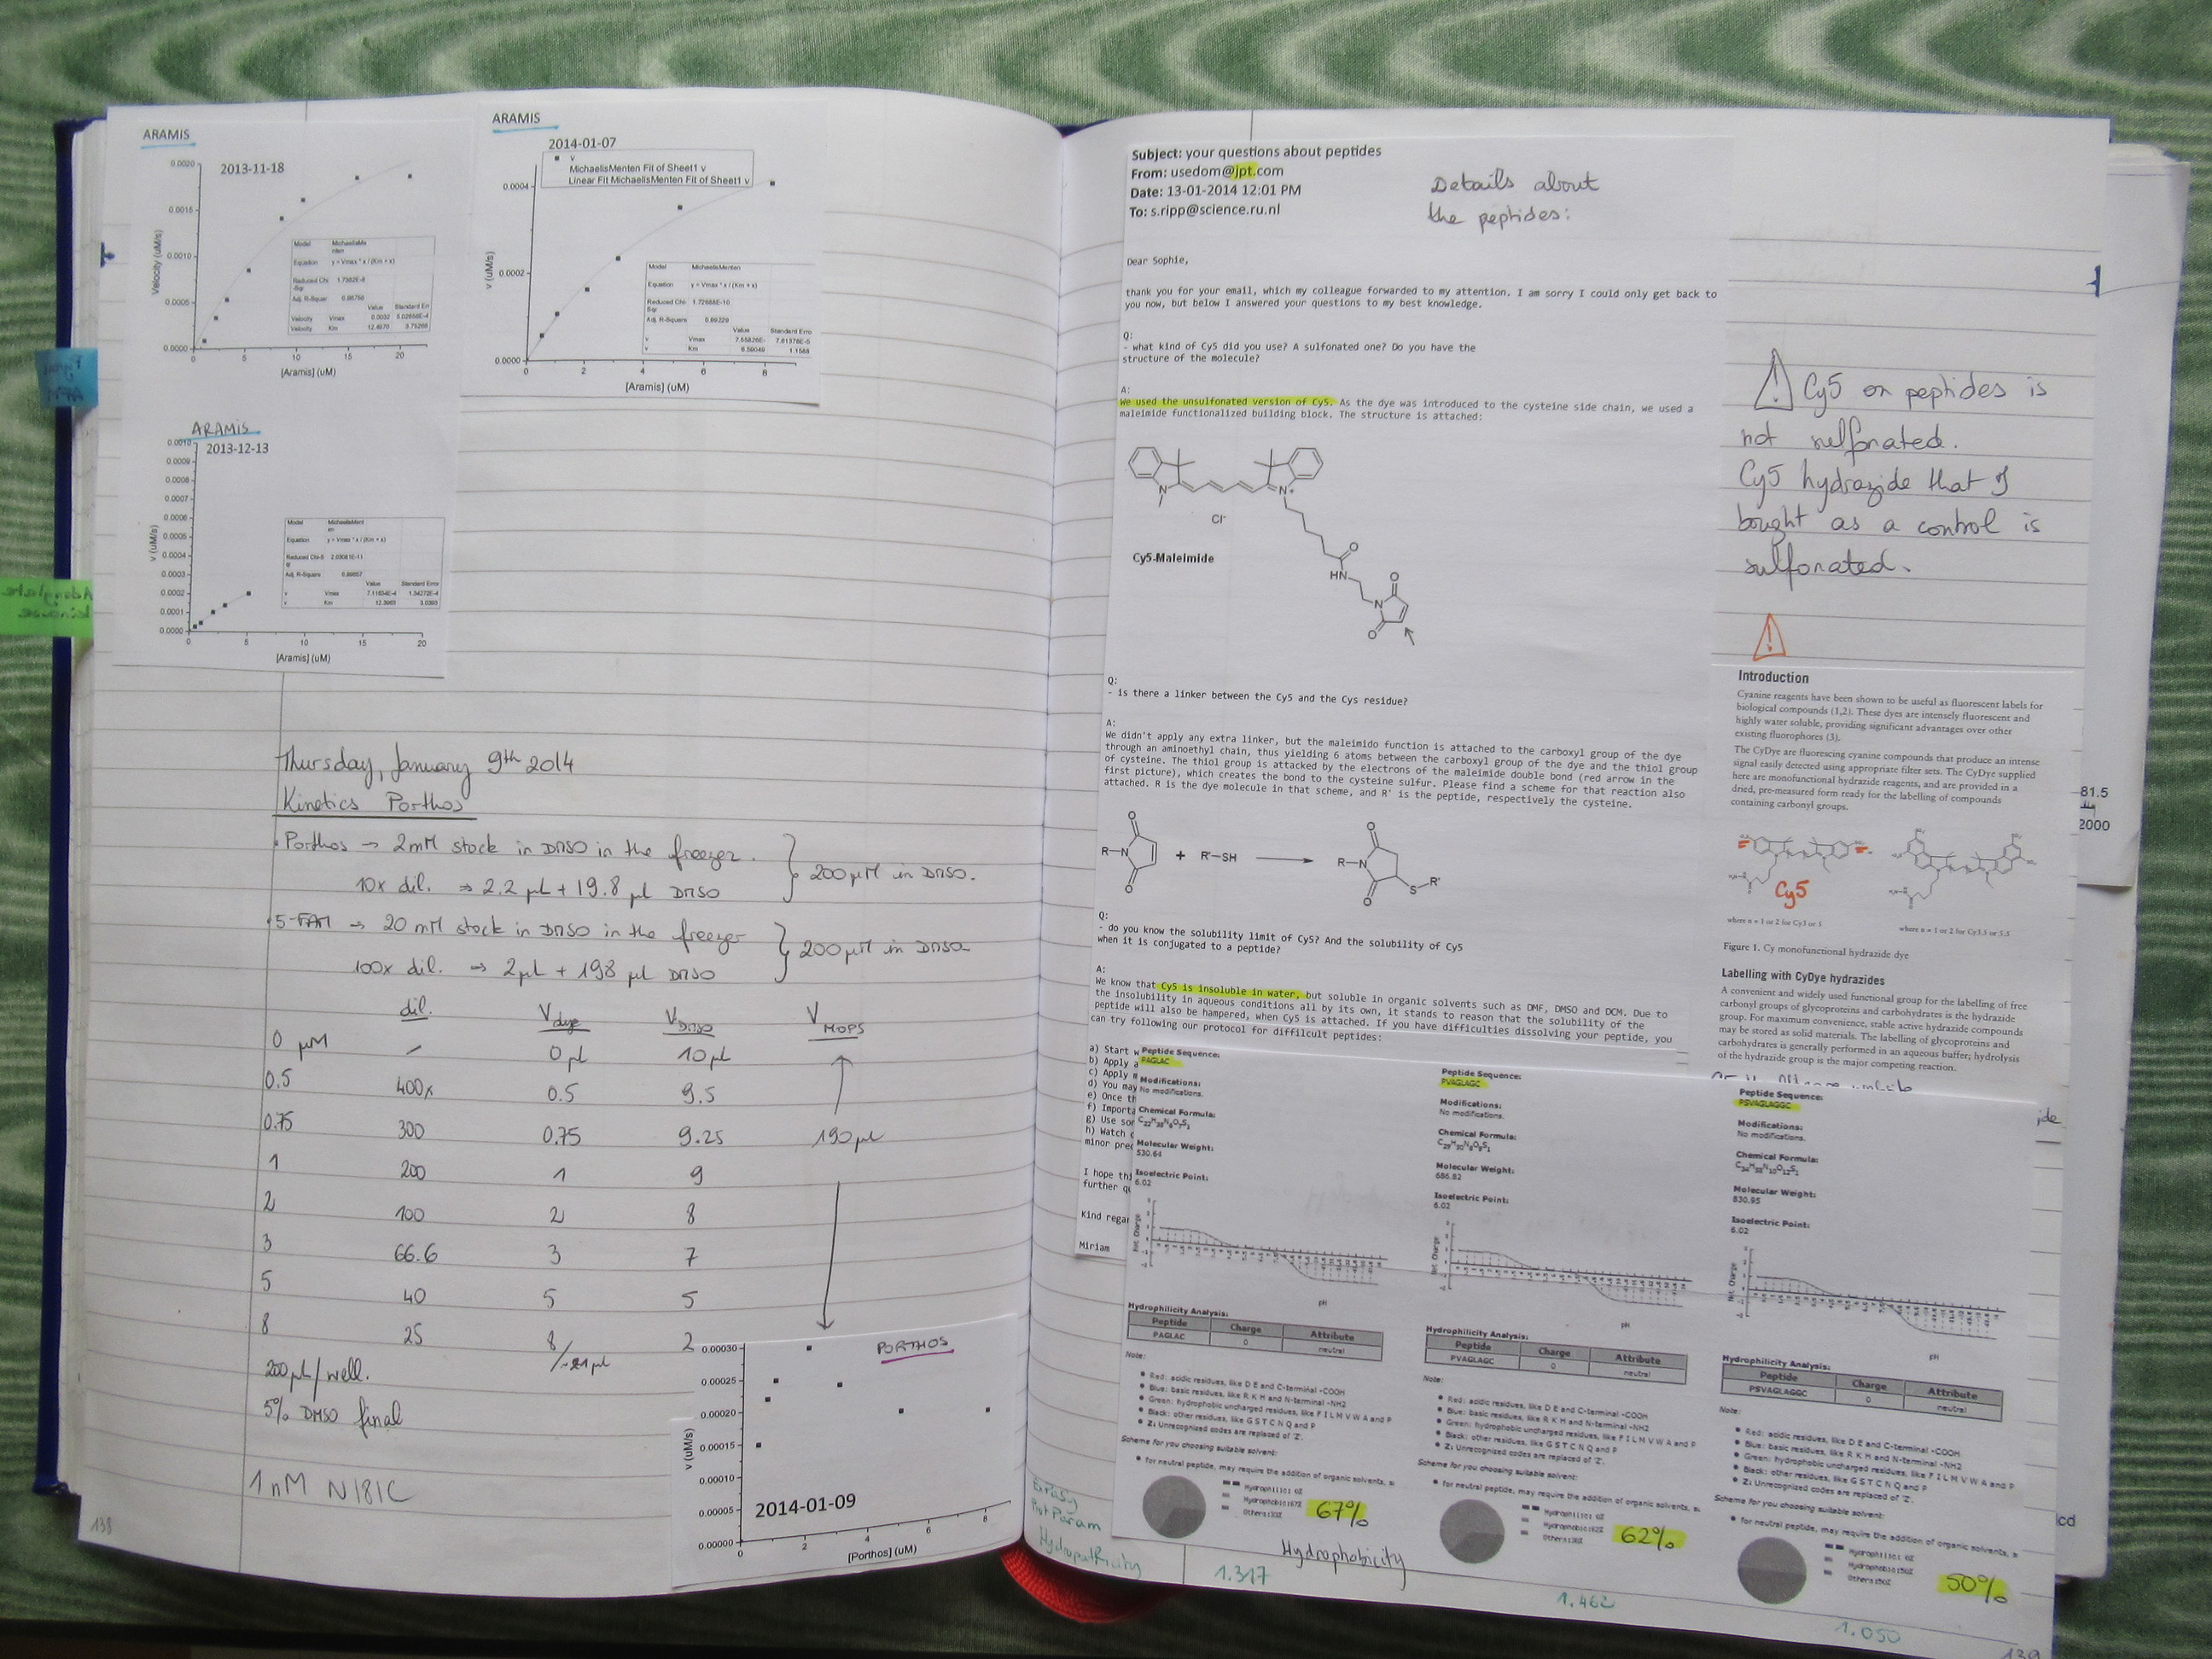 ARAMIS
2013-11-18
0.0020
0.0015
0.0010
0.0005
0.0000
Velocity (uM/s)
0 5 10 15 20
[Aramis] (uM)
Model MichaelisMe
nten
Equation y = Vmax * x / (Km + x)
Reduced Chi-Sqr
Adj. R-Square
Value Standard Err
Velocity Vmax 0.0032
Velocity Km
ARAMIS
2014-01-07
v
MichaelisMenten Fit of Sheet1 v
Linear Fit MichaelisMenten Fit of Sheet1 v
0.0004
0.0002
0.0000
v (uM/s)
0 2 4 6 8
[Aramis] (uM)
Model MichaelisMenten
Equation y = Vmax * x / (Km + x)
Reduced Chi-Sqr
Adj. R-Square
Value Standard Error
v Vmax
v Km 1.1568
ARAMIS
2013-12-13
0.0010
0.0009
0.0008
0.0007
0.0006
0.0005
0.0004
0.0003
0.0002
0.0001
0.0000
v (uM/s)
0 5 10 15 20
[Aramis] (uM)
Model MichaelisMent
en
Equation y = Vmax * x / (Km + x)
Adj. R-Square
Value Standard Error
v Vmax
v Km
Thursday, January 9th 2014
Kinetics Porthos
. Porthos → 2mM stock in DMSO in the freezer.
10x dil. ⇒ 2.2 µL + 19.8 µl DMSO
200µM in DMSO.
. 5-FAM → 20 mM stock in DMSO in the freezer
100x dil. → 2µL + 198 µl DMSO
200µM in DMSO
dil. Vdye VDMSO VMOPS
0 µM / 0µl 10µl
0.5 400x 0.5 9.5
0.75 300 0.75 9.25 190µl
1 200 1 9
2 100 2 8
3 66.6 3 7
5 40 5 5
8 25 8 2
/~21µl
200µl/well.
5% DMSO final
1 nM N181C
138
PORTHOS
0.00030
0.00025
0.00020
0.00015
0.00010
0.00005
0.00000
v (uM/s)
2014-01-09
0 2 4 6 8
[Porthos] (uM)
Subject: your questions about peptides
From: usedom@jpt.com
Date: 13-01-2014 12:01 PM
To: s.ripp@science.ru.nl
Details about
the peptides:
Dear Sophie,
thank you for your email, which my colleague forwarded to my attention. I am sorry I could only get back to
you now, but below I answered your questions to my best knowledge.
Q:
- what kind of Cy5 did you use? A sulfonated one? Do you have the
structure of the molecule?
A:
We used the unsulfonated version of Cy5. As the dye was introduced to the cysteine side chain, we used a
maleimide functionalized building block. The structure is attached:
N N+
Cl-
Cy5-Maleimide
O
HN
O
N
O
Q:
- is there a linker between the Cy5 and the Cys residue?
A:
We didn't apply any extra linker, but the maleimido function is attached to the carboxyl group of the dye
through an aminoethyl chain, thus yielding 6 atoms between the carboxyl group of the dye and the thiol group
of cysteine. The thiol group is attacked by the electrons of the maleimide double bond (red arrow in the
first picture), which creates the bond to the cysteine sulfur. Please find a scheme for that reaction also
attached. R is the dye molecule in that scheme, and R' is the peptide, respectively the cysteine.
O O
R-N + R'-SH R-N
O O S-R'
Q:
- do you know the solubility limit of Cy5? And the solubility of Cy5
when it is conjugated to a peptide?
A:
We know that Cy5 is insoluble in water, but soluble in organic solvents such as DMF, DMSO and DCM. Due to
the insolubility in aqueous conditions all by its own, it stands to reason that the solubility of the
peptide will also be hampered, when Cy5 is attached. If you have difficulties dissolving your peptide, you
can try following our protocol for diffilcult peptides:
a) Start w
b) Apply a
c) Apply
d) You may
e) Once th
f) Importa
g) Use so
h) Watch
minor pre
I hope thi
further q
Kind regar
Miriam
⚠ Cy5 on peptides is
not sulfonated.
Cy5 hydrazide that I
bought as a control is
sulfonated.
Introduction
Cyanine reagents have been shown to be useful as fluorescent labels for
biological compounds (1,2). These dyes are intensely fluorescent and
highly water soluble, providing significant advantages over other
existing fluorophores (3).
The CyDye are fluorescing cyanine compounds that produce an intense
signal easily detected using appropriate filter sets. The CyDye supplied
here are monofunctional hydrazide reagents, and are provided in a
dried, pre-measured form ready for the labelling of compounds
containing carbonyl groups.
Cy5
where n = 1 or 2 for Cy3 or 5
where n = 1 or 2 for Cy3.5 or 5.5
Figure 1. Cy monofunctional hydrazide dye
Labelling with CyDye hydrazides
A convenient and widely used functional group for the labelling of free
carbonyl groups of glycoproteins and carbohydrates is the hydrazide
group. For maximum convenience, stable active hydrazide compounds
may be stored as solid materials. The labelling of glycoproteins and
carbohydrates is generally performed in an aqueous buffer; hydrolysis
of the hydrazide group is the major competing reaction.
81.5
2000
Peptide Sequence:
PAGLAC
Modifications:
No modifications.
Chemical Formula:
C22H38N6O7S1
Molecular Weight:
530.64
Isoelectric Point:
6.02
Net Charge
pH
Hydrophilicity Analysis:
Peptide Charge Attribute
PAGLAC 0 neutral
Note:
Red: acidic residues, like D E and C-terminal -COOH
Blue: basic residues, like R K H and N-terminal -NH2
Green: hydrophobic uncharged residues, like F I L M V W A and P
Black: other residues, like G S T C N Q and P
Z: Unrecognized codes are replaced of 'Z'.
Scheme for you choosing suitable solvent:
for neutral peptide, may require the addition of organic solvents, s
67%
Peptide Sequence:
PVAGLAGC
Modifications:
No modifications.
Chemical Formula:
Molecular Weight:
686.82
Isoelectric Point:
6.02
Net Charge
pH
Hydrophilicity Analysis:
Peptide Charge Attribute
PVAGLAGC 0 neutral
Note:
Red: acidic residues, like D E and C-terminal -COOH
Blue: basic residues, like R K H and N-terminal -NH2
Green: hydrophobic uncharged residues, like F I L M V W A and P
Black: other residues, like G S T C N Q and P
Z: Unrecognized codes are replaced of 'Z'.
Scheme for you choosing suitable solvent:
for neutral peptide, may require the addition of organic solvents, su
62%
Peptide Sequence:
PSVAGLAGGC
Modifications:
No modifications.
Chemical Formula:
Molecular Weight:
830.95
Isoelectric Point:
6.02
Net Charge
pH
Hydrophilicity Analysis:
Peptide Charge Attribute
PSVAGLAGGC 0 neutral
Note:
Red: acidic residues, like D E and C-terminal -COOH
Blue: basic residues, like R K H and N-terminal -NH2
Green: hydrophobic uncharged residues, like F I L M V W A and P
Black: other residues, like G S T C N Q and P
Z: Unrecognized codes are replaced of 'Z'.
Scheme for you choosing suitable solvent:
for neutral peptide, may require the addition of organic solvents, s
50%
Hydrophobicity
ExPaSy
ProtParam
Hydropathicity
1.317
1.462
1.050
139